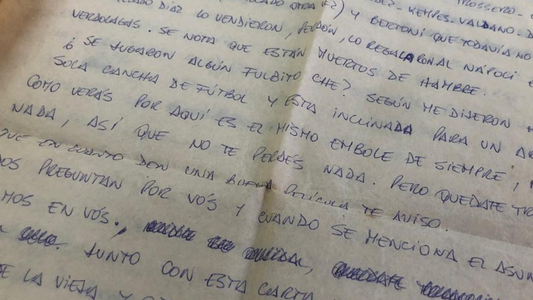 DIAZ LO VENDIERON, PERDÓN, LO REGALARON AL NÁPOLI
KEMPES-VALDANO-D
Y BERTONI QUE TODAVÍA NO
VERDOLAGAS. SE NOTA QUE ESTÁN MUERTOS DE HAMBRE.
¿ SE JUGARON ALGÚN FULBITO CHE? SEGÚN ME DIJERON
SOLA CANCHA DE FÚTBOL Y ESTA INCLINADA PARA UN
COMO VERÁS POR AQUÍ ES EL MISMO EMBOLE DE SIEMPRE,
NADA, ASÍ QUE NO TE PERDÉS NADA. PERO QUEDATE TR
QUE EN CUANTO DEN UNA BUENA PELÍCULA TE AVISO.
DOS PREGUNTAN POR VÓS Y CUANDO SE MENCIONA EL ASUN
MOS EN VÓS.
JUNTO CON ESTA CARTA
DE LA VIEJA Y